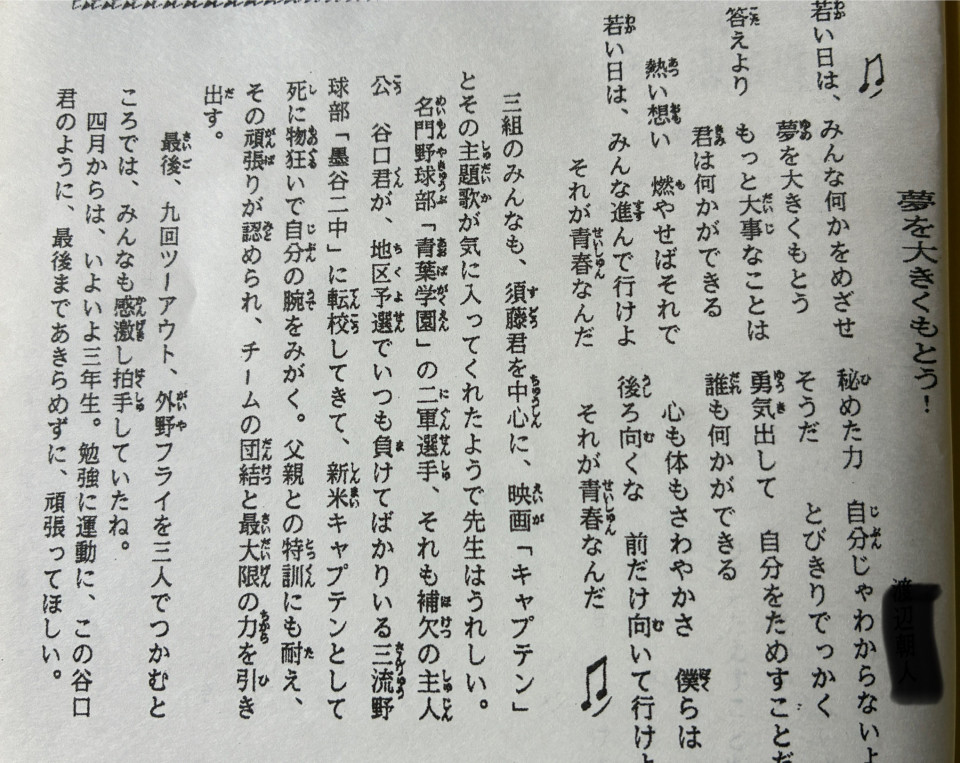 夢を大きくもとう!
若い日は、みんな何かをめざせ
夢を大きくもとう
答えより もっと大事なことは
君は何かができる
熱い想い 燃やせばそれで
若い日は、みんな進んで行けよ
それが青春なんだ
秘めた力 自分じゃわからないよ
そうだ とびきりでっかく
勇気出して 自分をためすことだ
誰も何かができる
心も体もさわやかさ 僕らは
後ろ向くな 前だけ向いて行けよ
それが青春なんだ
三組のみんなも、須藤君を中心に、映画「キャプテン」
とその主題歌が気に入ってくれたようで先生はうれしい。
名門野球部「青葉学園」の二軍選手、それも補欠の主人
公 谷口君が、地区予選でいつも負けてばかりいる三流野
球部「墨谷二中」に転校してきて、新米キャプテンとして
死に物狂いで自分の腕をみがく。父親との特訓にも耐え、
その頑張りが認められ、チームの団結と最大限の力を引き
出す。
最後、九回ツーアウト、外野フライを三人でつかむと
ころでは、みんなも感激し拍手していたね。
四月からは、いよいよ三年生。勉強に運動に、この谷口
君のように、最後まであきらめずに、頑張ってほしい。